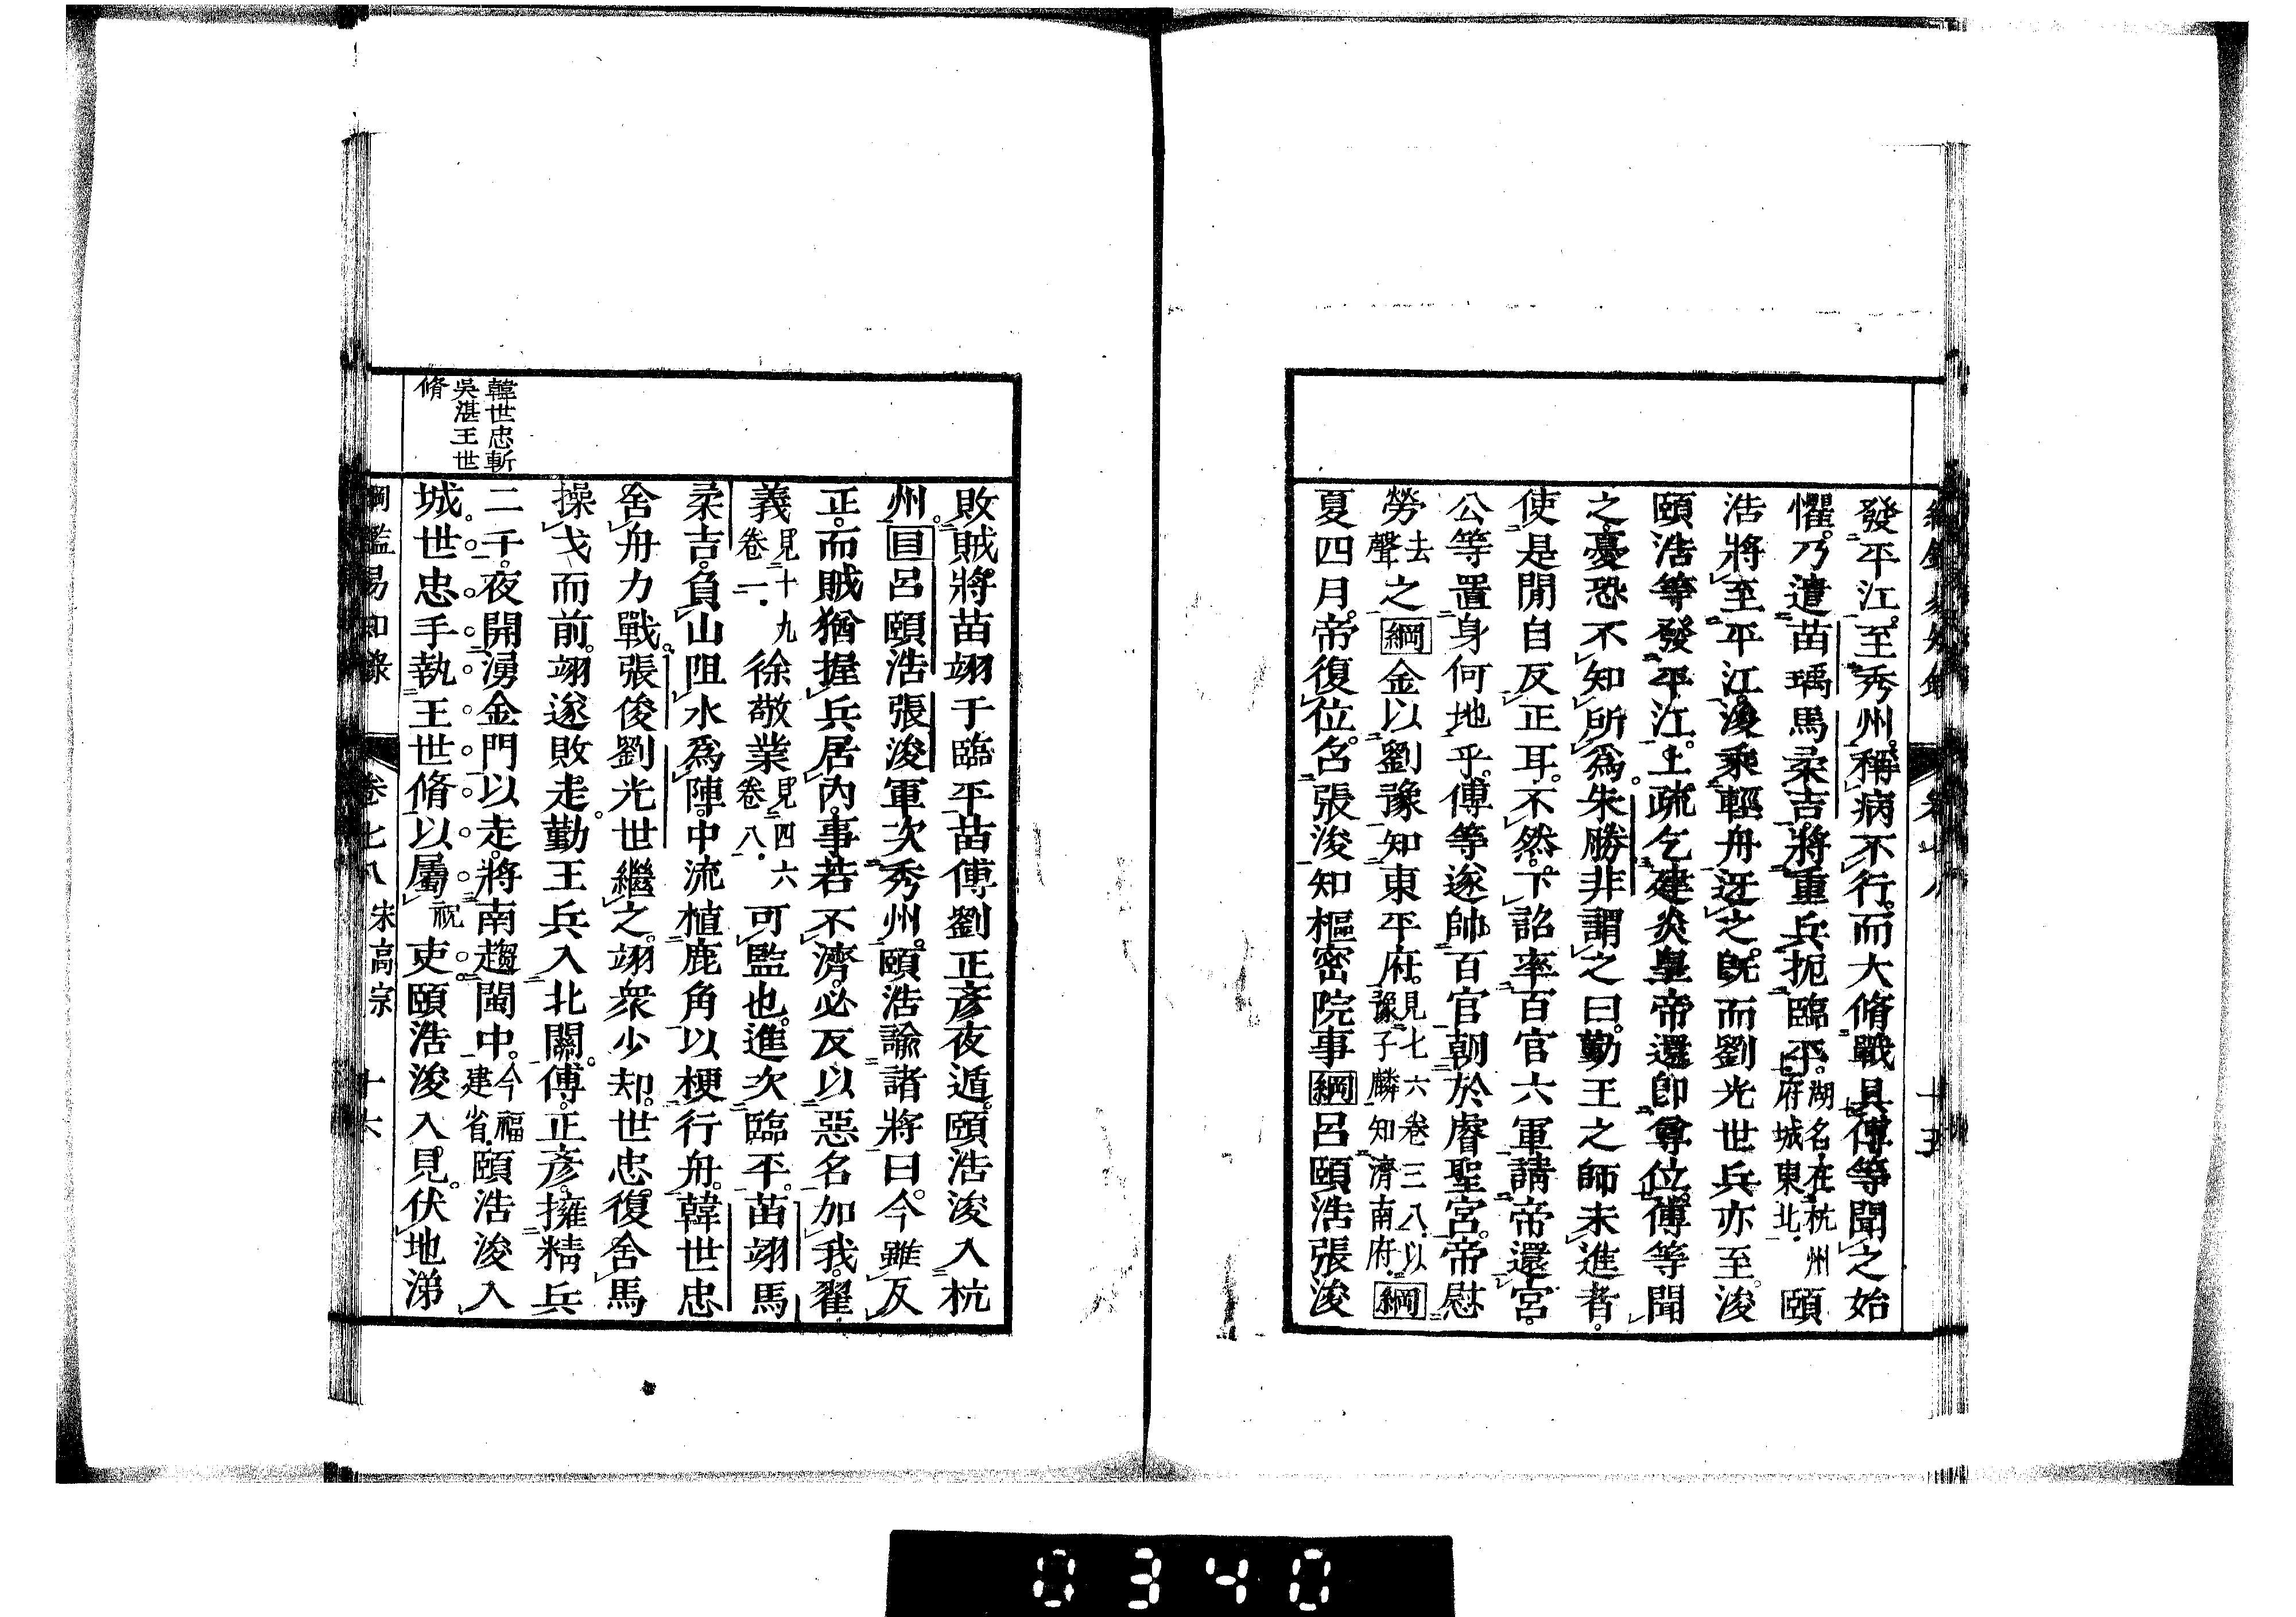 發平江。至秀州。稱病不行。而大脩戰具。傅等聞之始
懼。乃遣苗瑀馬柔吉。將重兵扼臨平。湖名。在杭州府城東北。頤
浩將至平江。浚乘輕舟迓之。既而劉光世兵亦至。浚
頤浩等發平江。上疏乞建炎皇帝還卽尊位。傅等聞
之。憂恐不知所爲。朱勝非謂之曰。勤王之師未進者。
使是閒自反正耳。不然。下詔率百官六軍請帝還宮。
公等置身何地乎。傅等遂帥百官朝於睿聖宮。帝慰
勞去聲之綱金以劉豫知東平府。見七六卷三八。以豫子麟知濟南府。綱
夏四月。帝復位。名張浚知樞密院事綱呂頤浩張浚
敗賊將苗翊于臨平苗傅劉正彥夜遁。頤浩浚入杭
州。目呂頤浩張浚軍次秀州。頤浩諭諸將曰。今雖反
正。而賊猶握兵居內。事若不濟。必反以惡名加我。翟
義見十九卷一。徐敬業見四六卷八。可監也。進次臨平。苗翊馬
柔吉。負山阻水爲陣。中流植鹿角以梗行舟。韓世忠
舍舟力戰。張俊劉光世繼之。翊衆少却。世忠復舍馬
操戈而前。翊遂敗走。勤王兵入北關。傅正彥。擁精兵
二千。夜開湧金門以走。將南趨閩中。今福建省。頤浩浚入
城。世忠手執王世脩以屬祝吏頤浩浚入見。伏地涕
韓世忠斬
吳湛王世
脩
綱鑑易知錄 卷七八 宋高宗 十六